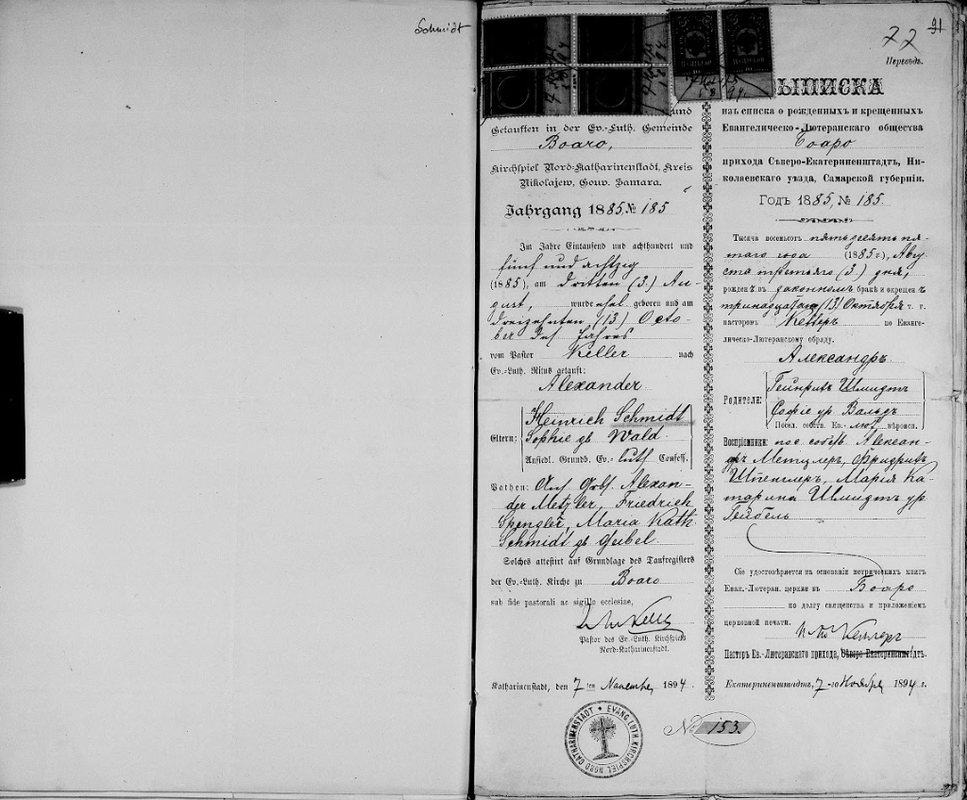 Schmidt
77
91
Переводъ.
und
Getauften in der Ev.-Luth. Gemeinde
Boaro,
Kirchspiel Nord-Katharinenstadt, Kreis
Nikolajew, Gouv. Samara.
Jahrgang 1885 № 185
Im Jahre Eintausend und achthundert und
fünf und achtzig
(1885), am dritten (3.) Au-
gust, wurde ehel. geboren und am
dreizehnten (13) Octo-
ber des Jahres
vom Pastor Keller nach
Ev.-Luth. Ritus getauft:
Alexander.
Eltern:
Heinrich Schmidt
Sophie gb Wald.
Ansiedl. Grundb. Ev.- luth Confess.
Pathen: Alexan-
der Metzler, Friedrich
Spengler, Maria Kath.
Schmidt gb Geibel.
Solches attestirt auf Grundlage des Taufregisters
der Ev.-Luth. Kirche zu Boaro
sub fide pastorali ac sigillo ecclesiae,
Keller
Pastor des Ev.-Luth. Kirchspiels
Nord-Katharinenstadt.
Katharinenstadt, den 7 ten November 1894.
EVANG. LUTH. KIRCHSPIEL NORD KATHARINENSTADT
ВЫПИСКА
изъ списка о рожденныхъ и крещенныхъ
Евангелическо-Лютеранскаго общества
Боаро
прихода Сѣверо-Екатериненштадтъ, Ни-
колаевскаго уѣзда, Самарской губерніи.
Годъ 1885, № 185.
Тысяча восемьсотъ пятьдесятъ пя-
таго года (1885 г.), Авгу
ста третьяго (3.) дня,
рожденъ въ законномъ бракѣ и окрещенъ
тринадцатаго (13) Октября т. г.
пасторомъ Келлеръ по Еванге-
лическо-Лютеранскому обряду.
Александръ.
Родители:
Гейнрихъ Шмидтъ
Софіе ур Вальдъ
Посел. собств. Ев.- лют. вѣроисп.
Воспріемники: пос собств Алексан-
дръ Метцлеръ, Фридрихъ
Шпенглеръ, Марія Ка-
тарина Шмидтъ ур
Гейбель
Сіе удостовѣряется на основаніи метрическихъ книгъ
Еван.-Лютеран. церкви въ Боаро
по долгу священства и приложеніемъ
церковной печати.
Келлеръ
Пасторъ Ев.-Лютеранскаго прихода, Сѣверо-Екатериненштадтъ.
Екатериненштадтъ, 7-го Ноября 1894 г.
№ 153.